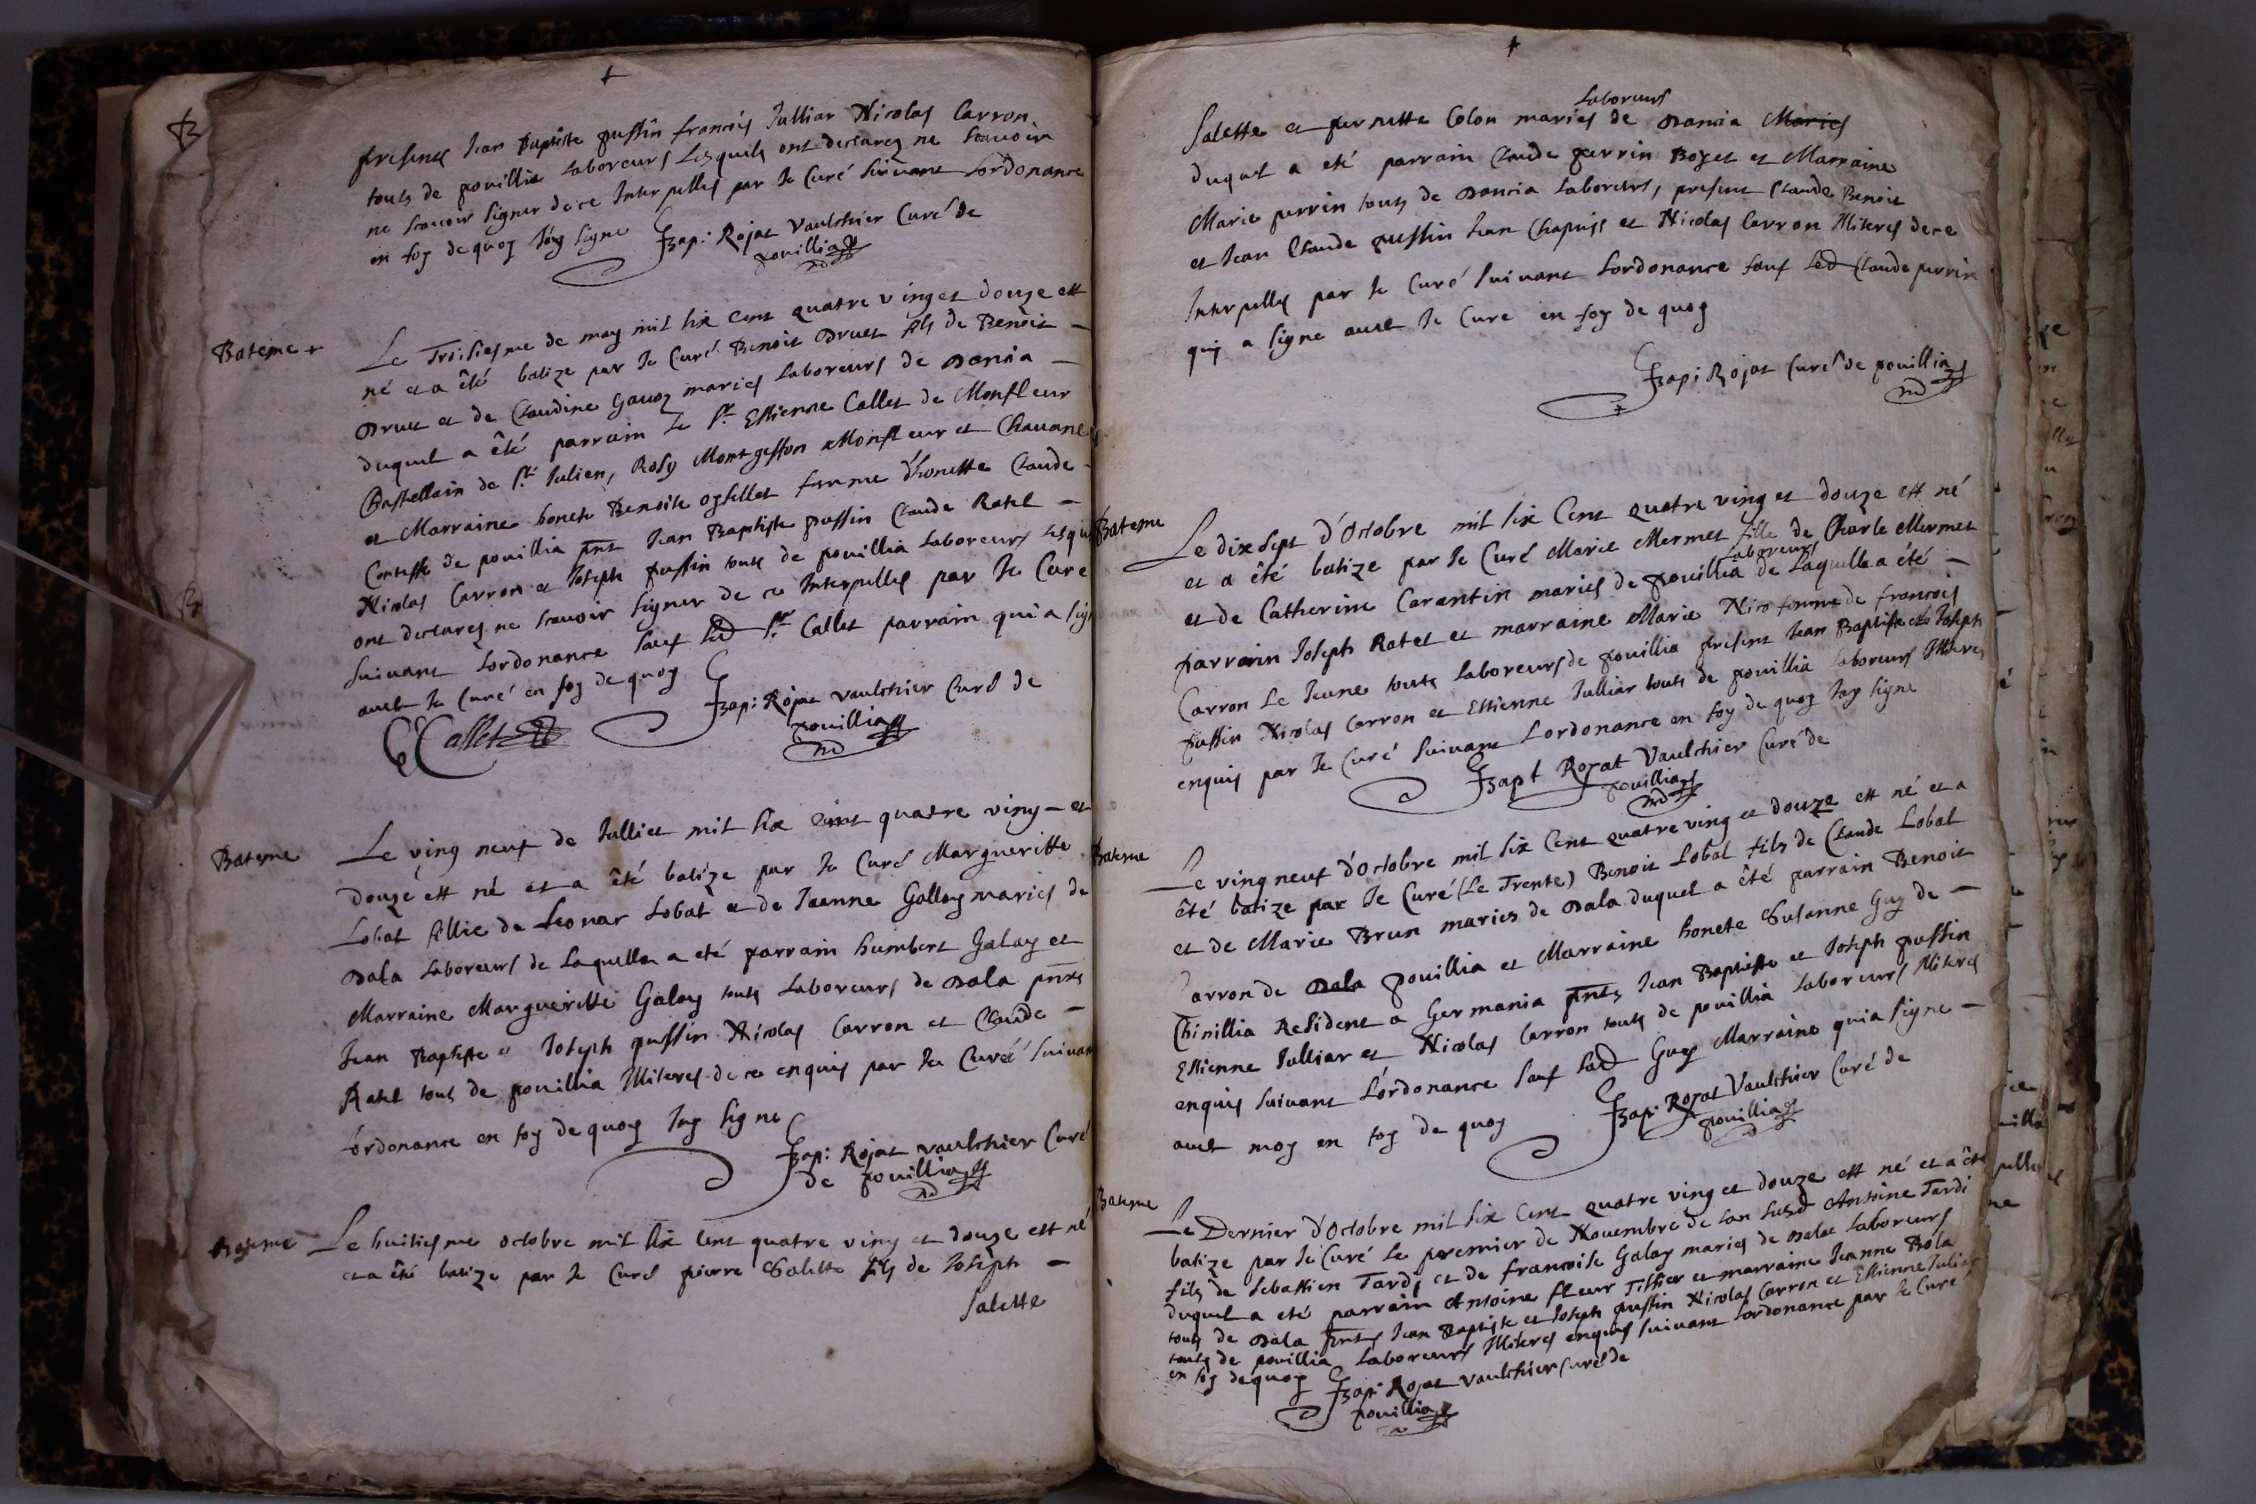 presens Jean Baptiste pussin francois Julliar Nicolas Carron
touts de pouillia Laboreurs Lesquels ont declarez ne scavoir
ne scavoir signer de ce Interpellés par le Curé suivant Lordonance
en foy de quoy J'ay signe Jbap: Rojat Vaulchier Curé de
pouillia
Bateme
Le Troisiesme de may mil six cent quatre vinget douze est
né et a êté batize par le Curé Benoit Druet fils de Benoit
Druet et de Claudine Gavoz mariés Laboreurs de Dancia
duquel a êté parrain le Sr. Estienne Callet de Monfleur
Chastellain de St. Julien, Rosy Montgesson Monfleur et Chavane
et Marraine honete Benoite femme d'honette Claude
Contesse de pouillia pnt Jean Baptiste pussin Claude Ratel
Nicolas Carron et Joseph pussin touts de pouillia Laboreurs
ont declarez ne scavoir signer de ce Interpellés par le Cure
suivant Lordonance sauf led Sr. Callet parrain qui a
avec le Curé en foy de quoy
Jbap: Rojat vaulchier Curé de
pouillia
Callet
Bateme
Le ving neuf de Julliet mil six cent quatre ving et
douze est né et a êté batize par le Curé Margueritte
Lobat fillie de Leonar Lobat et de Jeanne Gallay mariés de
Dala Laboreurs de Laquella a eté parrain humbert Galay et
Marraine Margueritte Galay touts Laboreurs de Dala pnts
Jean Baptiste et Joseph pussin Nicolas Carron et Claude
Ratel tous de pouillia Illiteres de ce enquis par le Curé
Lordonance en foy de quoy Jay signe
Jbap: Rojat vaulchier Curé
de pouillia
Bateme
Le huitiesme octobre mil six cent quatre ving et douze est né
et a êté batize par le Curé pierre Salette fils de Joseph
Salette
Laboreurs
Salette et pernette Colon mariés de Dancia Mariés
duquel a eté parrain Claude perrin Bozet et Marraine
Marie perrin touts de Dancia Laboreurs, present Claude Benoit
et Jean Claude pussin Jean Chapuis et Nicolas Carron Illiteres de ce
Interpellés par le Curé suivant Lordonance sauf Led Claude perrin
qui a signe avec le Cure en foy de quoy
Jbap: Rojat Curé de pouillia
Bateme
Le dix sept d'Octobre mil six Cent quatre ving et douze est né
et a êté batize par le Curé Marie Mermet fille de Charle Mermet
Laboreurs
et de Catherine Carantin mariés de pouillia de Laquella a été
parrain Joseph Ratel et marraine Marie femme de francois
Carron Le Jeune touts Laboreurs de pouillia present Jean Baptiste et Joseph
pussin Nicolas Carron et Estienne Julliar touts de pouillia Laboreurs
enquis par le Curé suivant Lordonance en foy de quoy Jay signe
Jbapt Rojat Vaulchier Curé de
pouillia
Bateme
Le ving neuf d'Octobre mil six Cent quatre ving et douze est né et a
êté batize par le Curé (Le Trente) Benoit Lobat fils de Claude Lobat
et de Marie Brun mariés de Dala duquel a êté parrain Benoit
Carron de Dala pouillia et Marraine honete Susanne Guy de
Chinillia Resident a Germania pnts Jean Baptiste et Joseph pussin
Estienne Julliar et Nicolas Carron touts de pouillia Laboreurs Illiteres
enquis suivant Lordonance sauf Lad Guy Marraine qui a signe
avec moy en foy de quoy
Jbap: Rojat Vaulchier Curé de
pouillia
Bateme
Le Dernier d'Octobre mil six Cent quatre ving et douze est né et a êté
batize par le Curé Le premier de Novembre de Lan susd Antoine Tardi
fils de Sebastien Tardi et de francoise Galay mariés de Dala Laboreurs
duquel a eté parrain Antoine fleur Tissier et marraine Jeanne Bola
touts de Dala pnts Jean Baptiste et Joseph pussin Nicolas Carron et Estienne Juliar
touts de pouillia Laboreurs Illiteres enquis suivant Lordonance par le Curé
en foy de quoy
Jbap: Rojat Vaulchier Curé de
pouillia